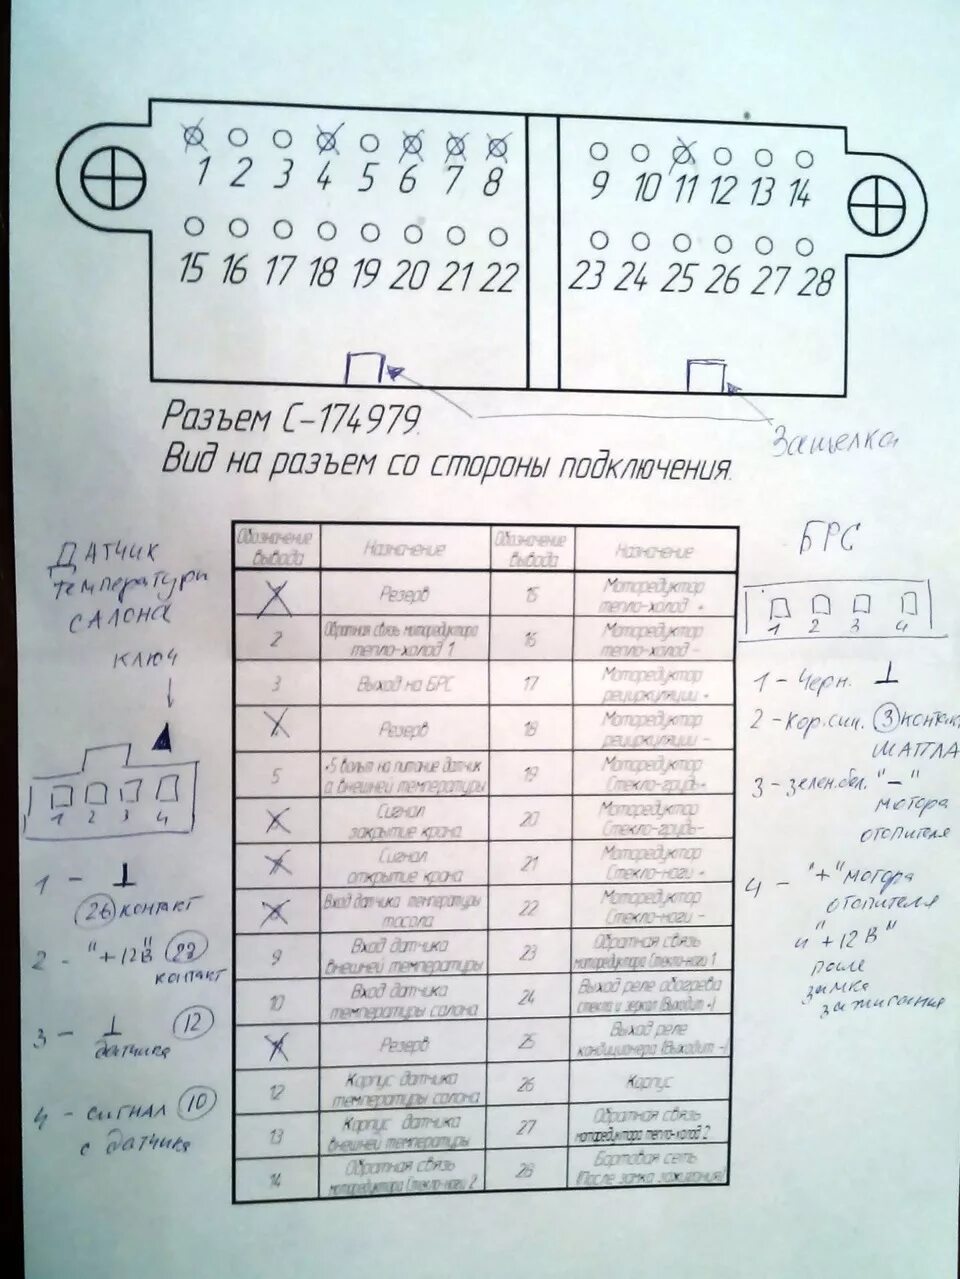 1 2 3 4 5 6 7 8 9 10 11 12 13 14
15 16 17 18 19 20 21 22 23 24 25 26 27 28
Разъем С-174979.
Вид на разъем со стороны подключения.
Защелка
ДАТЧИК
температуры
САЛОНА
КЛЮЧ
1 2 3 4
1 - ⊥
26 контакт
2 - "+12В"
контакт
3 - ⊥ 12
датчика
4 - сигнал 10
с датчика
Обозначение вывода Назначение Обозначение вывода Назначение
Резерв 15 Моторедуктор
тепло-холод +
2 Обратная связь моторедуктора
тепло-холод 1 16 Моторедуктор
тепло-холод -
3 Выход на БРС 17 Моторедуктор
рециркуляции +
Резерв 18 Моторедуктор
рециркуляции -
5 +5 вольт на питание датчик
а внешней температуры 19 Моторедуктор
Стекло-грудь+
Сигнал
закрытие крана 20 Моторедуктор
Стекло-грудь-
Сигнал
открытие крана 21 Моторедуктор
Стекло-ноги +
Вход датчика температуры
тосола 22 Моторедуктор
Стекло-ноги -
9 Вход датчика
внешней температуры 23 Обратная связь
моторедуктора Стекло-ноги 1
10 Вход датчика
температуры салона 24 Выход реле обогрева
стекла и зеркал (Выходит +)
Резерв 25 Выход реле
кондиционера (Выходит -)
12 Корпус датчика
температуры салона 26 Корпус
13 Корпус датчика
внешней температуры 27 Обратная связь
моторедуктора тепло-холод 2
14 Обратная связь
моторедуктора Стекло-ноги 2 28 Бортовая сеть
(После замка зажигания)
БРС
1 2 3 4
1 - Черн. ⊥
2 - кор.син. 3 контак.
ШАПЛА
3 - зелен.бел. "-"
мотора
отопителя
4 - "+" мотора
отопителя
и "+12В"
после
замка
зажигания